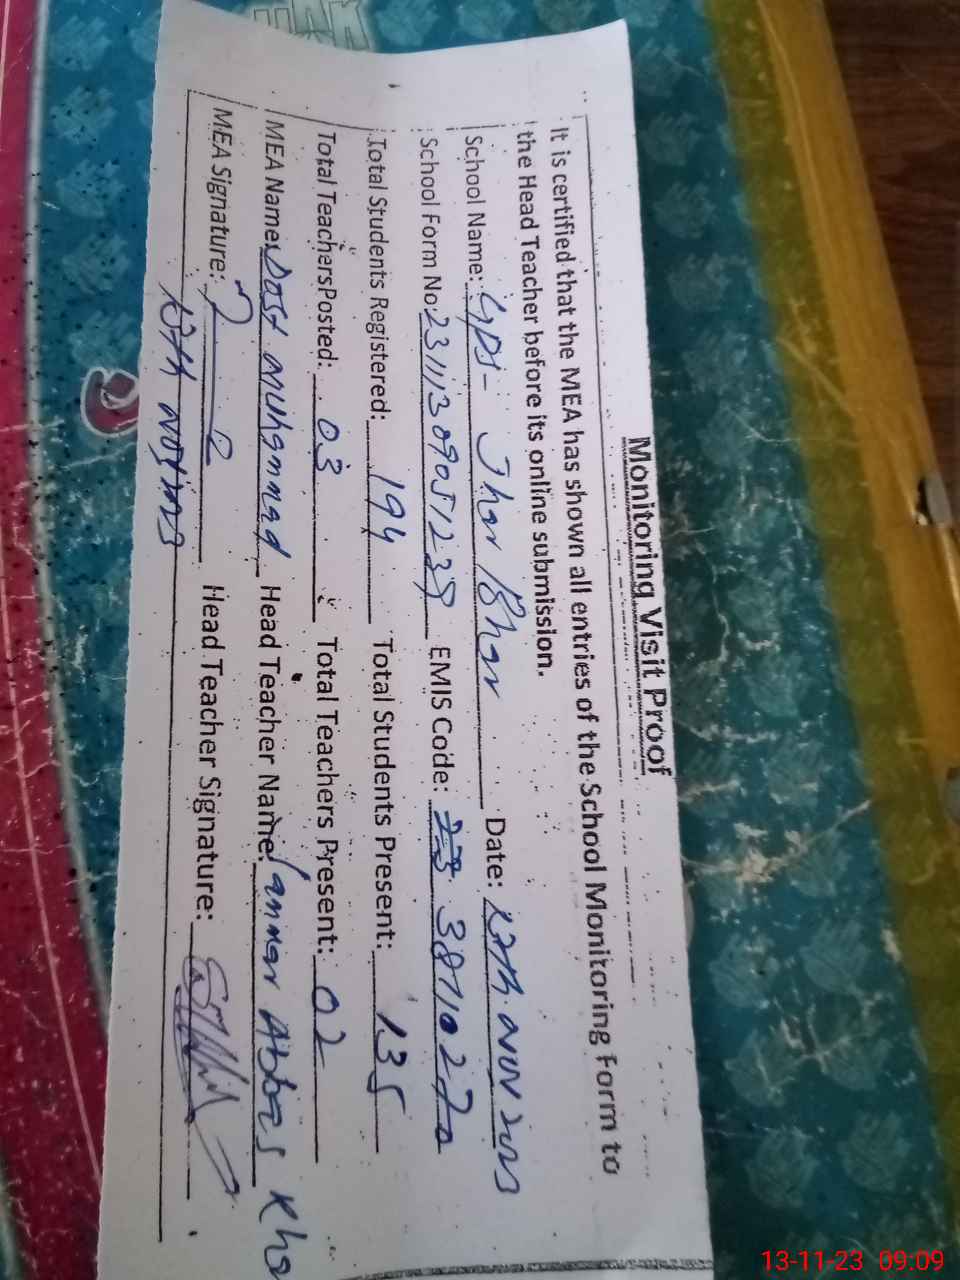 Monitoring Visit Proof
It is certified that the MEA has shown all entries of the School Monitoring Form to
the Head Teacher before its online submission.
School Name: GPS- Jhar Date: 13th NOV 2023
School Form No: EMIS Code: 38110270
Total Students Registered: 194 Total Students Present: 135
Total Teachers Posted: 03 Total Teachers Present: 02
MEA Name: Dost Muhammad Head Teacher Name: Abbas Kha
MEA Signature: Head Teacher Signature:
13-11-23 09:09